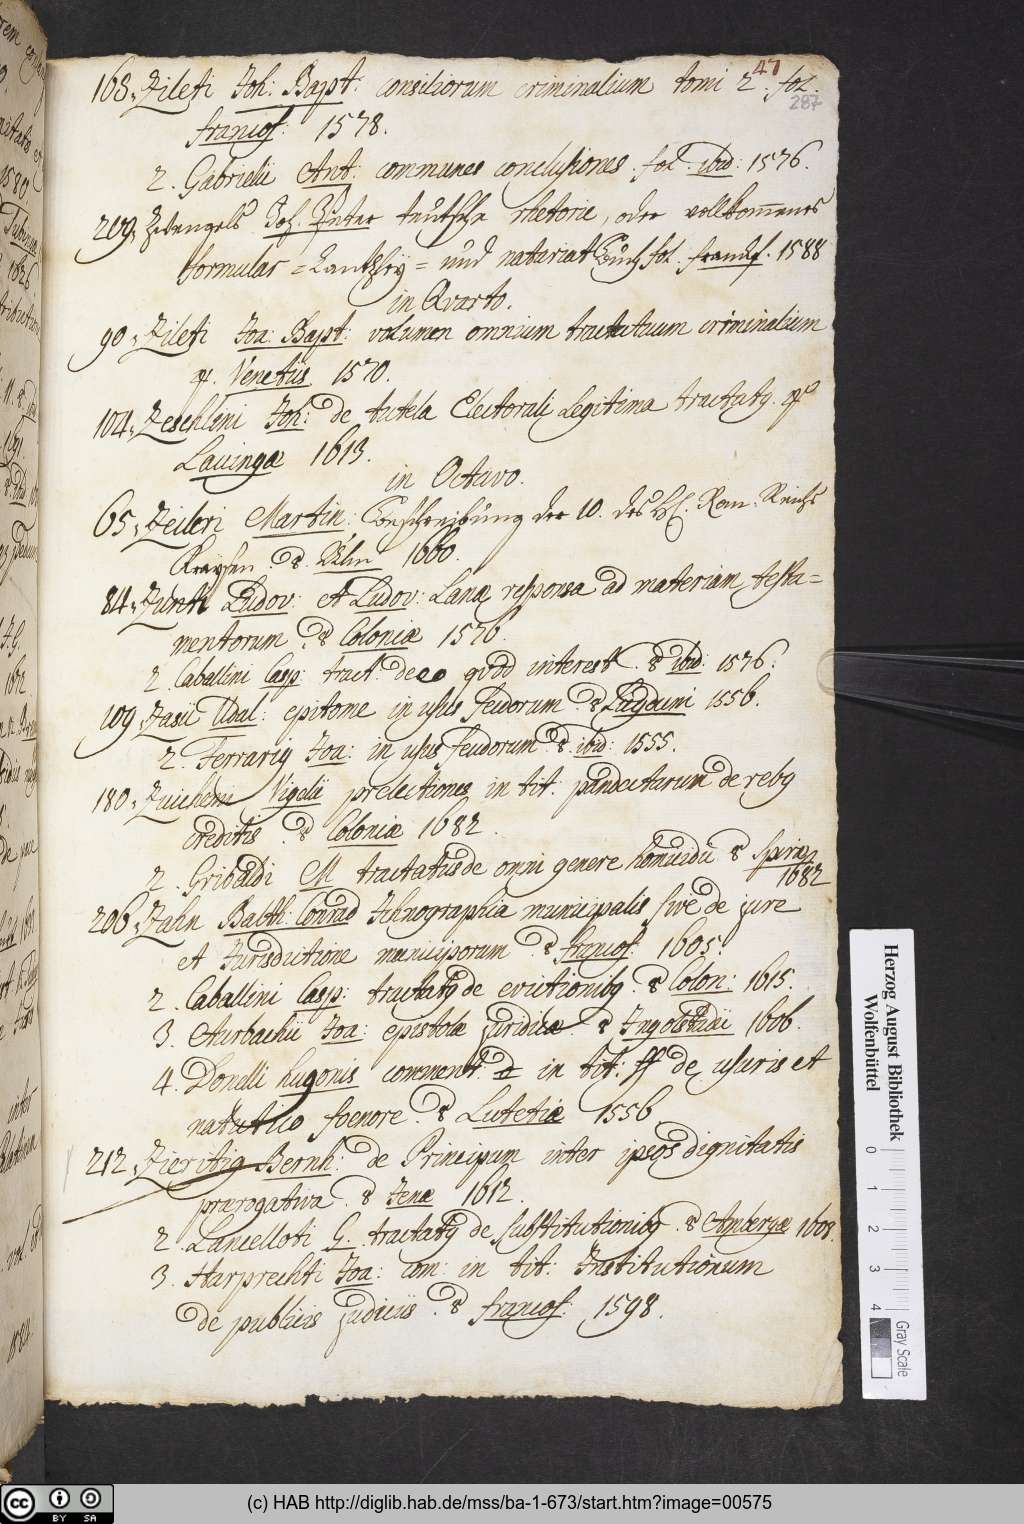 47
287
168. Zileti Joh: Bapt: consiliorum criminalium tomi 2. fol.
francof: 1578.
2. Gabrielii Ant: communes conclusiones fol. ibid: 1576.
209. Joh. Peter teutsche rhetoric, oder vollkommenes
formular = Cantzley = und notariat Buch fol. franckf. 1588
in Qvarto.
90. Zileti Joa: Bapt: volumen omnium tractatuum criminalium
4. Venetiis 1570.
104. Zeschlini Joh: de tutela Electorali Legitima tractatq. 4º
Lauingæ 1613.
in Octavo.
65. Zeileri Martin: Beschreibung der 10. des H. Röm. Reichs
Krayssen. 8. Ulm 1660.
84. Zunti Ludov: et Ludov: Lanæ responsa ad materiam testa=
mentorum. 8 Coloniæ 1576.
2. Caballini Casp: tract: de eo qvod interest. 8 ibid: 1576.
109 Zasii Udal: epitome in usus feudorum. 8 Lugduni 1556.
2. Ferrariq Joa: in usus feudorum. 8. ibid: 1555.
180. Zuichemi Vigelii prelectiones in tit. pandectarum de rebq
creditis. 8 Coloniæ 1682.
2. Gribaldi M tractatus de omni genere homicidii 8 Spiræ
1682
206. Zahn Balth: Conrad Ichnographia municipalis sive de jure
et Jurisdictione municiporum. 8 francof: 1605.
2. Caballini Casp: tractatq de evictionibq. 8 Colon: 1615.
3. Aurbachii Joa: epistolæ juridicæ 8 Ingolstadii 1606.
4. Donelli hugonis comment: in tit: ff de usuris et
nautico foenore. 8 Lutetiæ 1556
212. Zieritiq Bernh: de Principum inter ipsos dignitatis
prærogativa. 8 Jenæ 1612.
2. Lancelloti G. tractatq de substitutionibq. 8 Ambergæ 1608.
3. Harprechti Joa: com: in tit: Institutionum
de publicis judiciis. 8 francof: 1598.
Herzog August Bibliothek
Wolfenbüttel
0 1 2 3 4
Gray Scale
BY SA
(c) HAB http://diglib.hab.de/mss/ba-1-673/start.htm?image=00575